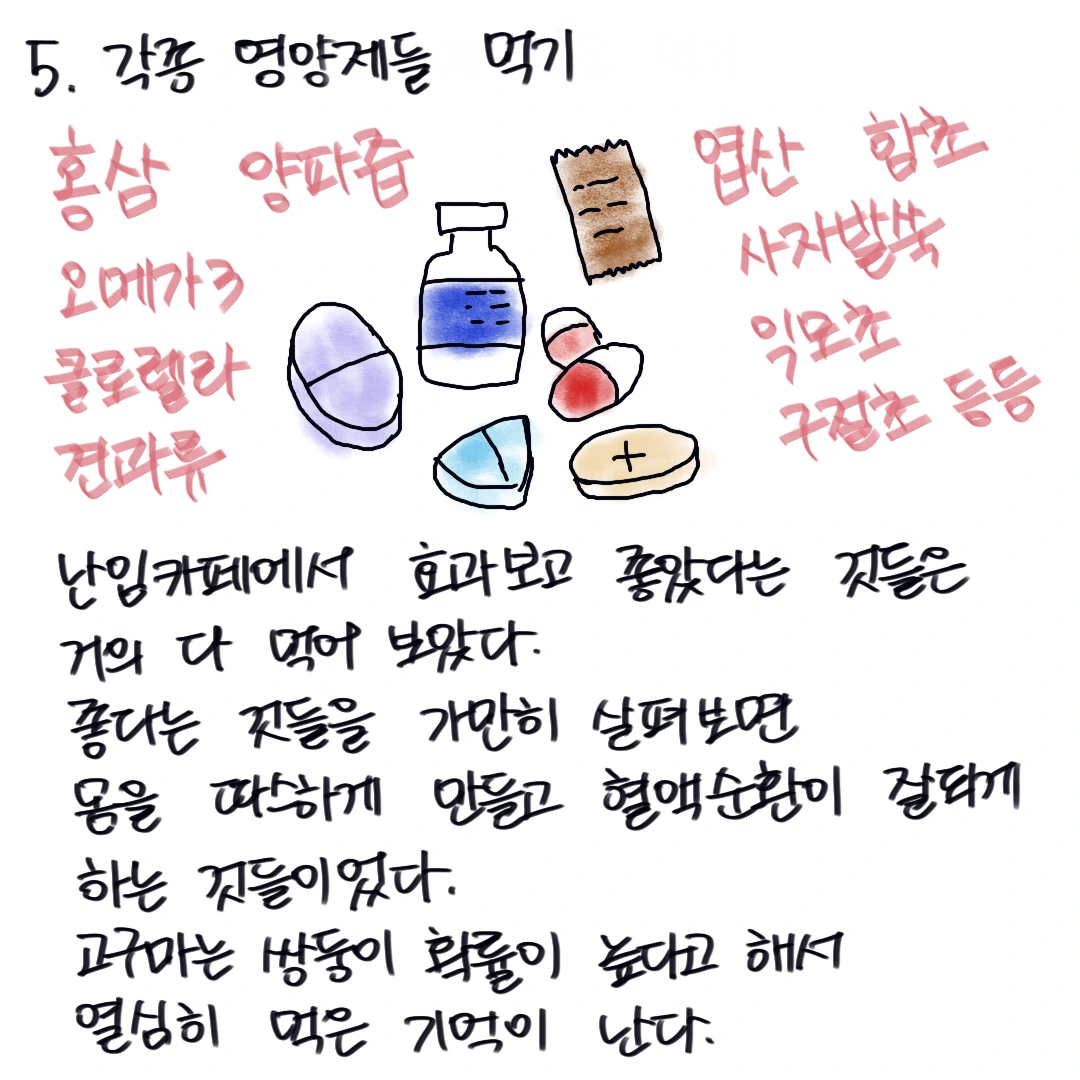 5. 각종 영양제들 먹기
홍삼 양파즙
오메가3
클로렐라
견과류
엽산 함초
사자발쑥
익모초
구절초 등등
난임카페에서 효과보고 좋았다는 것들은
거의 다 먹어 보았다.
좋다는 것들을 가만히 살펴보면
몸을 따스하게 만들고 혈액순환이 잘되게
하는 것들이었다.
고구마는 쌍둥이 확률이 높다고 해서
열심히 먹은 기억이 난다.